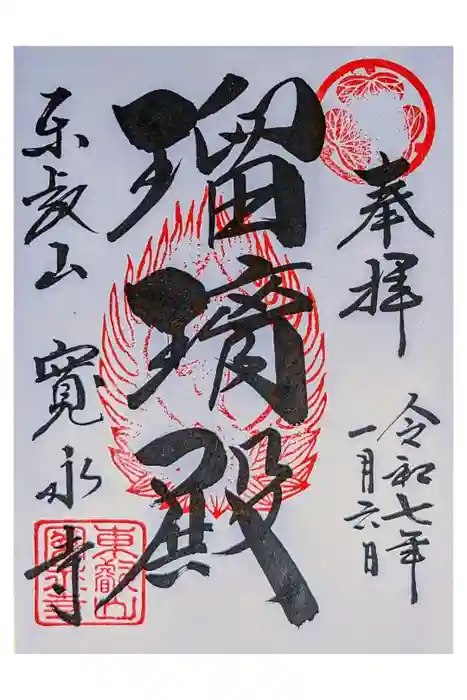 奉拝
令和七年
一月六日
瑠璃殿
東叡山
寛永寺
東叡山
寛永寺